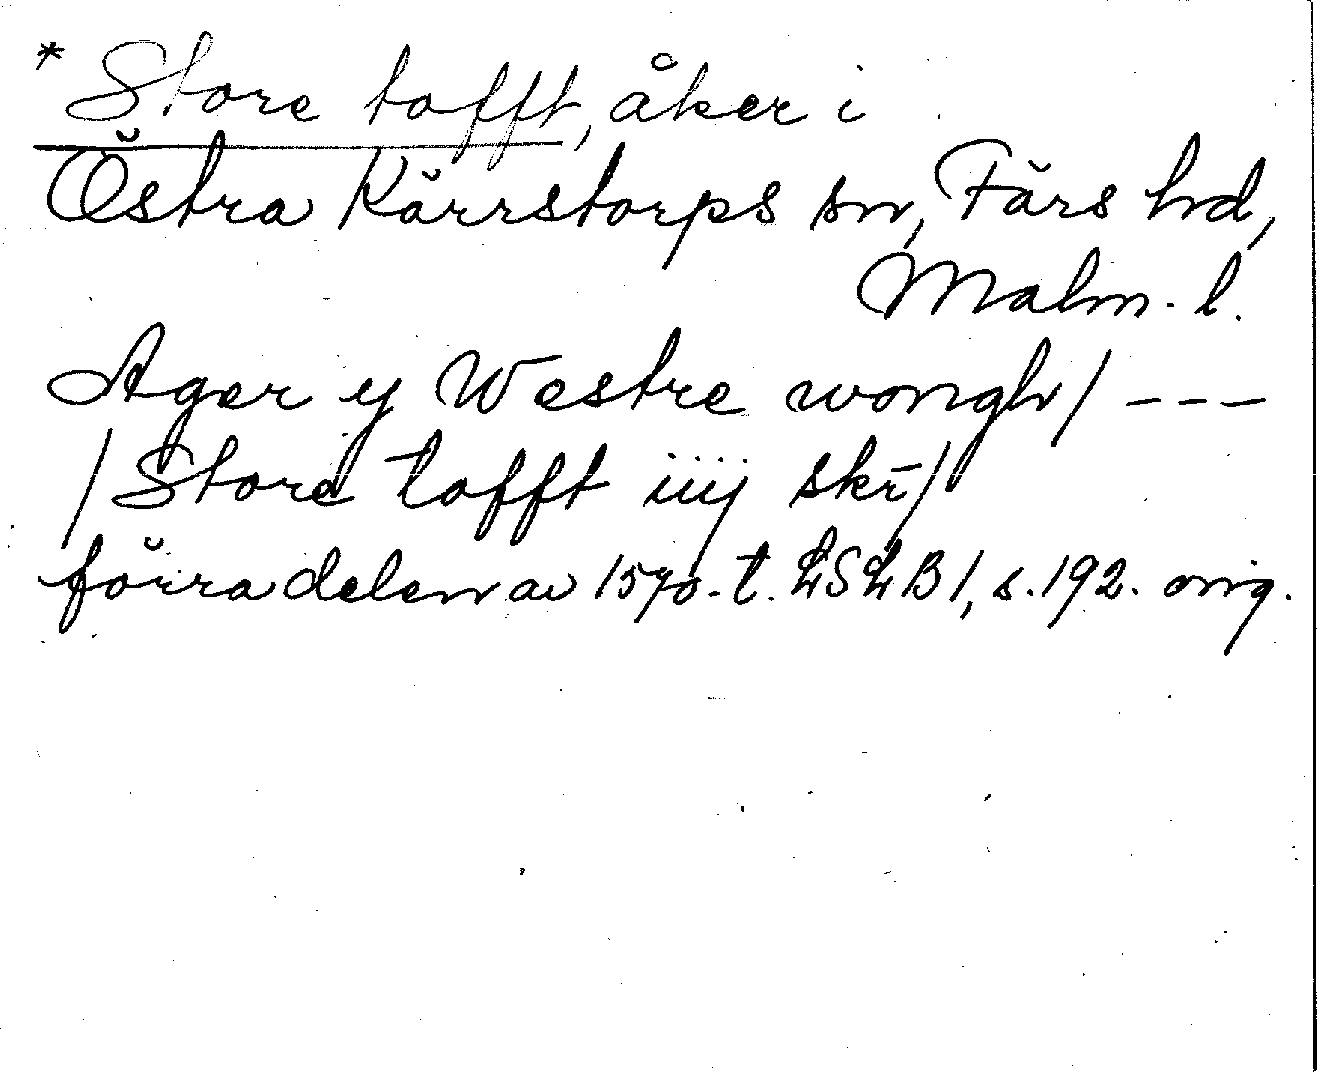 * Store tofft, åker i
Östra Kärrstorps sn, Färs hd,
Malm. l.
Ager y Westre wongh / ---
/ Store tofft iiij skr̄ /
förra delen av 1570-t. LSLB 1, s. 192. orig.